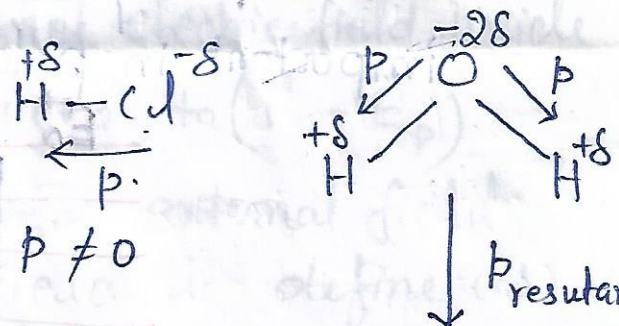 +δ H — Cl -δ
p.
p ≠ 0
-2δ
p O p
+δ +δ
H H
p resutan